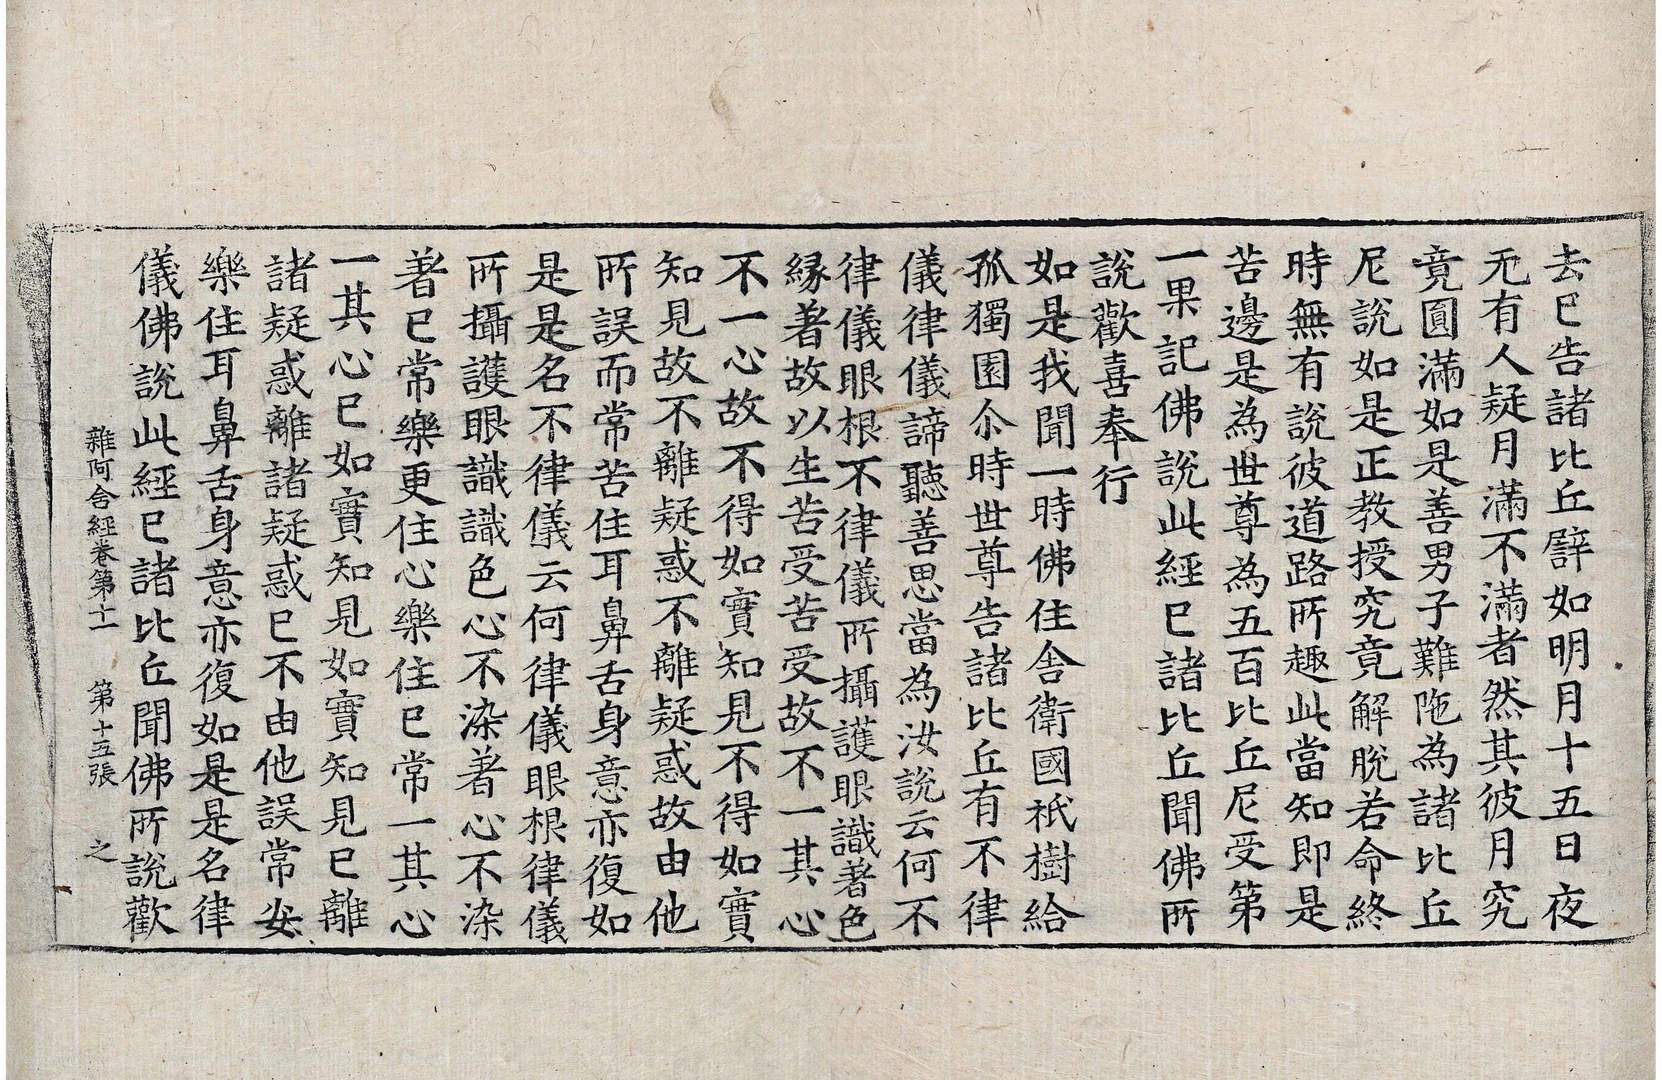 去已告諸比丘譬如明月十五日夜
无有人疑月滿不滿者然其彼月究
竟圓滿如是善男子難陁為諸比丘
尼說如是正教授究竟解脫若命終
時無有說彼道路所趣此當知即是
苦邊是為世尊為五百比丘尼受第
一果記佛說此經已諸比丘聞佛所
說歡喜奉行
如是我聞一時佛住舍衛國祇樹給
孤獨園尒時世尊告諸比丘有不律
儀律儀諦聽善思當為汝說云何不
律儀眼根不律儀所攝護眼識著色
緣著故以生苦受苦受故不一其心
不一心故不得如實知見不得如實
知見故不離疑惑不離疑惑故由他
所誤而常苦住耳鼻舌身意亦復如
是是名不律儀云何律儀眼根律儀
所攝護眼識識色心不染著心不染
著已常樂更住心樂住已常一其心
一其心已如實知見如實知見已離
諸疑惑離諸疑惑已不由他誤常安
樂住耳鼻舌身意亦復如是是名律
儀佛說此經已諸比丘聞佛所說歡
雜阿含經卷第十一 第十五張 之